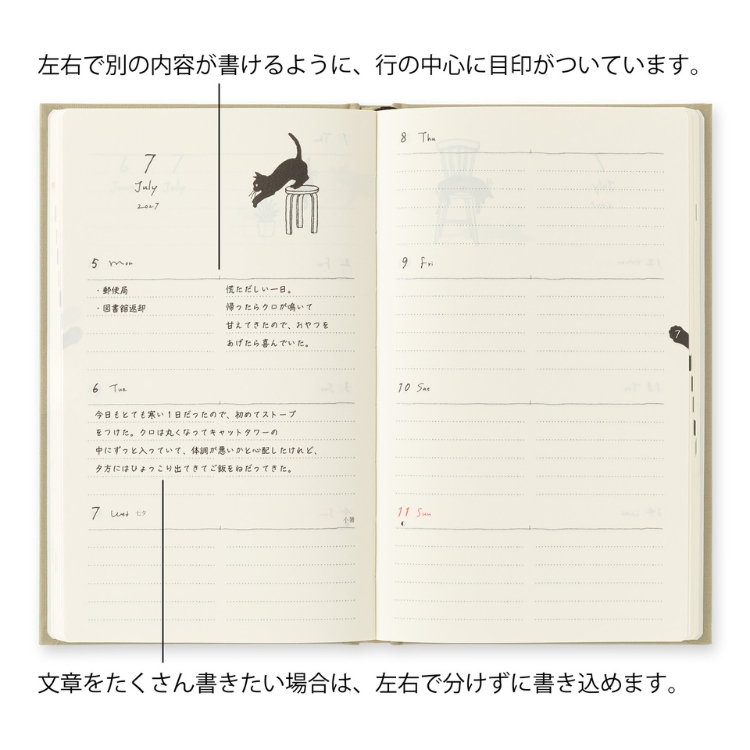 左右で別の内容が書けるように、行の中心に目印がついています。
7
July
2027
5 mon
・郵便局
・図書館返却
慌ただしい一日。
帰ったらクロが鳴いて
甘えてきたので、おやつを
あげたら喜んでいた。
6 Tue
今日もとても寒い1日だったので、初めてストーブ
をつけた。クロは丸くなってキャットタワーの
中にずっと入っていて、体調が悪いかと心配したけれど、
夕方にはひょっこり出てきてご飯をねだってきた。
7 Wed 七夕
小暑
8 Thu
9 Fri
7
10 Sat
11 Sun
文章をたくさん書きたい場合は、左右で分けずに書き込めます。